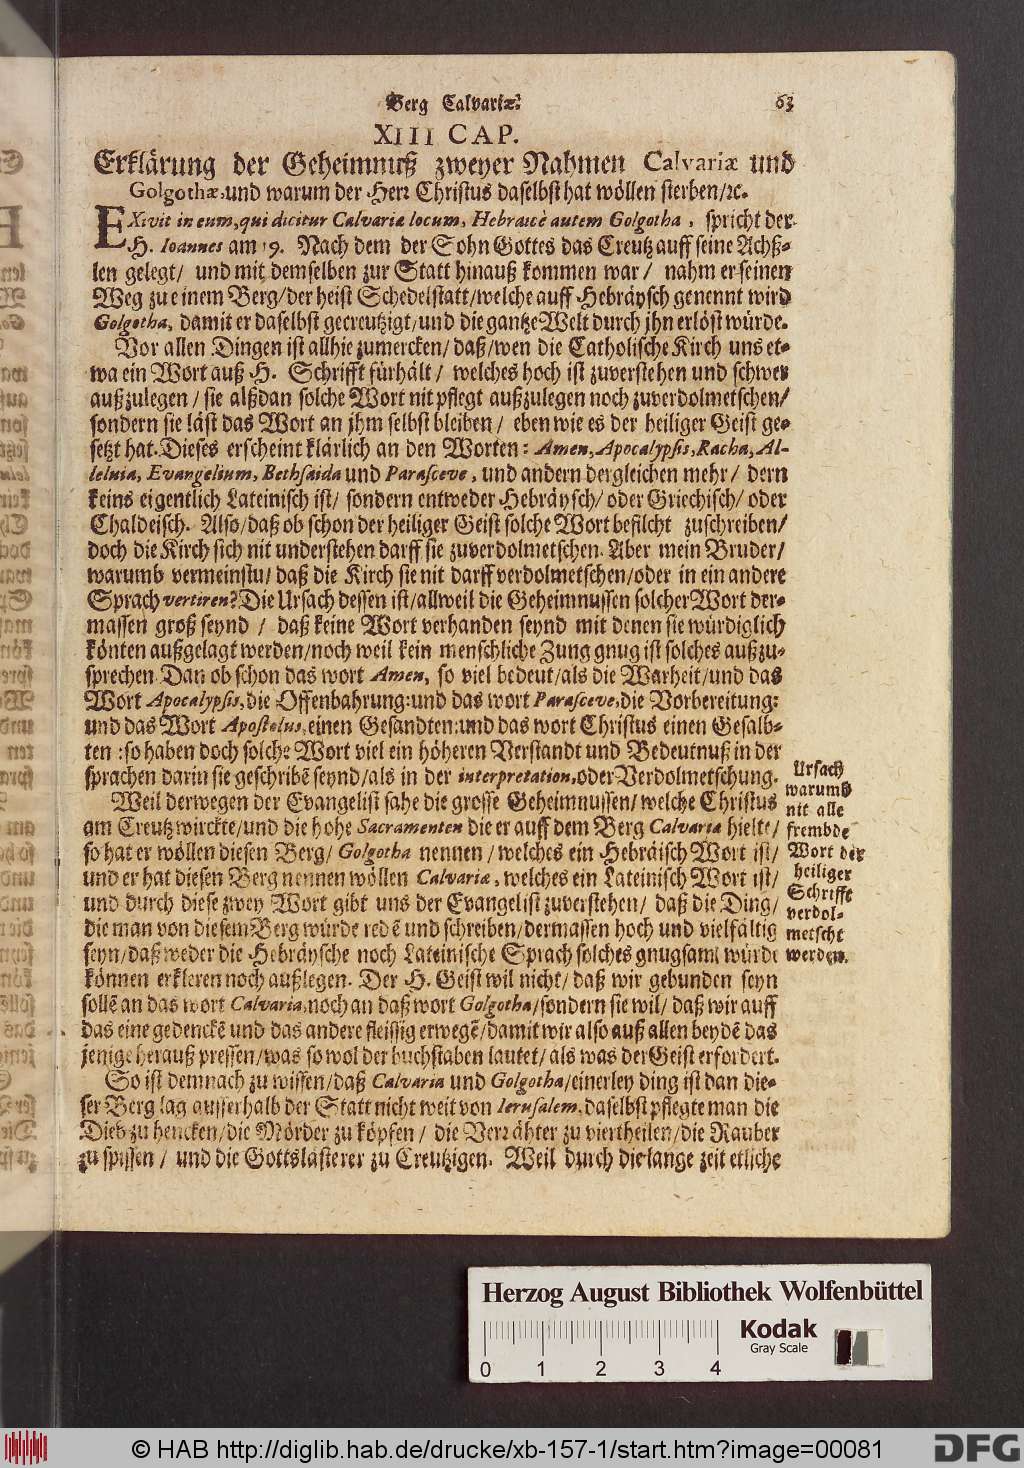 Berg Calvariæ. 63
XIII CAP.
Erklärung der Geheimnuß zweyer Nahmen Calvariæ und
Golgothæ, und warum der Herr Christus daselbst hat wöllen sterben/ꝛc.
EXivit in eum, qui dicitur Calvariæ locum, Hebraicè autem Golgotha, spricht der
H. Ioannes am 19. Nach dem der Sohn Gottes das Creutz auff seine Achß-
len gelegt/ und mit demselben zur Statt hinauß kommen war/ nahm er seinen
Weg zu einem Berg/der heist Schedelstatt/welche auff Hebräysch genennt wird
Golgotha, damit er daselbst gecreutzigt/und die gantze Welt durch jhn erlöst würde.
Vor allen Dingen ist allhie zumercken/ daß/wen die Catholische Kirch uns et-
wa ein Wort auß H. Schrifft fürhält/ welches hoch ist zuverstehen und schwer
außzulegen/ sie alßdan solche Wort nit pflegt außzulegen noch zuverdolmetschen/
sondern sie läst das Wort an jhm selbst bleiben/ eben wie es der heiliger Geist ge-
setzt hat. Dieses erscheint klärlich an den Worten: Amen, Apocalypsis, Racha, Al-
leluia, Evangelium, Bethsaida und Parasceve, und andern dergleichen mehr/ dern
keins eigentlich Lateinisch ist/ sondern entweder Hebräysch/ oder Griechisch/ oder
Chaldeisch. Also/ daß ob schon der heiliger Geist solche Wort befilcht zuschreiben/
doch die Kirch sich nit understehen darff sie zuverdolmetschen. Aber mein Bruder/
warumb vermeinstu/ daß die Kirch sie nit darff verdolmetschen/oder in ein andere
Sprach vertiren? Die Ursach dessen ist/allweil die Geheimnussen solcher Wort der-
massen groß seynd/ daß keine Wort verhanden seynd mit denen sie würdiglich
könten außgelagt werden/noch weil kein menschliche Zung gnug ist solches außzu-
sprechen. Dan ob schon das wort Amen, so viel bedeut/als die Warheit/und das
Wort Apocalypsis, die Offenbahrung: und das wort Parasceve, die Vorbereitung:
und das Wort Apostolus, einen Gesandten: und das wort Christus einen Gesalb-
ten: so haben doch solche Wort viel ein höheren Verstandt und Bedeutnuß in der
sprachen darin sie geschribē seynd/als in der interpretation, oder Verdolmetschung.
Weil derwegen der Evangelist sahe die grosse Geheimnussen/ welche Christus
am Creutz wirckte/und die hohe Sacramenten die er auff dem Berg Calvaria hielte/
so hat er wöllen diesen Berg/ Golgotha nennen/ welches ein Hebräisch Wort ist/
und er hat diesen Berg nennen wöllen Calvariæ, welches ein Lateinisch Wort ist/
und durch diese zwey Wort gibt uns der Evangelist zuverstehen/ daß die Ding/
die man von diesem Berg würde redē und schreiben/dermassen hoch und vielfältig
seyn/daß weder die Hebräysche noch Lateinische Sprach solches gnugsam würde
können erkleren noch außlegen. Der H. Geist wil nicht/ daß wir gebunden seyn
sollē an das wort Calvaria, noch an daß wort Golgotha/sondern sie wil/ daß wir auff
das eine gedenckē und das andere fleissig erwegē/damit wir also auß allen beydē das
jenige herauß pressen/was so wol der buchstaben lautet/ als was der Geist erfordert.
So ist demnach zu wissen/daß Calvaria und Golgotha/einerley ding ist dan die-
ser Berg lag ausserhalb der Statt nicht weit von Ierusalem, daselbst pflegte man die
Dieb zu hencken/die Mörder zu köpfen/ die Verrähter zu viertheilen/die Rauber
zu spissen/ und die Gottslästerer zu Creutzigen. Weil durch die lange zeit etliche
Ursach
warumb
nit alle
frembde
Wort der
heiliger
Schrifft
verdol-
metscht
werden.
Herzog August Bibliothek Wolfenbüttel
Kodak
Gray Scale
0 1 2 3 4
© HAB http://diglib.hab.de/drucke/xb-157-1/start.htm?image=00081
DFG